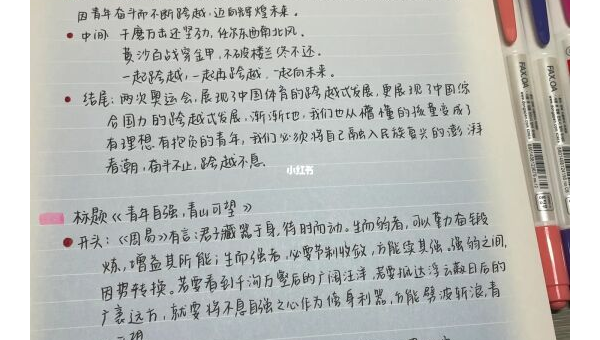 因青年奋斗而不断跨越,迈向辉煌未来。
• 中间: 千磨万击还坚劲,任尔东西南北风。
黄沙百战穿金甲,不破楼兰终不还。
一起跨越,一起再跨越,一起向未来。
• 结尾: 两次奥运会,展现了中国体育的跨越式发展,更展现了中国综
合国力的跨越式发展,渐渐地,我们也从懵懂的孩童变成了
有理想有抱负的青年,我们必须将自己融入民族复兴的澎湃
春潮,奋斗不止,跨越不息.
小红书
标题《青年自强,青山可望》
• 开头:《周易》有言:君子藏器于身,待时而动。生而弱者,可以努力奋锻
炼,增益其所能;生而强者,必要节制收敛,方能实其强.强弱之间,
因势转换。若要看到千沟万壑后的广阔汪洋,若要抵达浮云蔽日后的
广袤远方,就要将不息自强之心作为修身利器,方能劈波斩浪,青
FAXOA
FAXOA